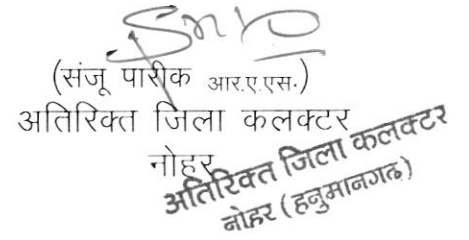 (संजू पारीक आर.ए.एस.)
अतिरिक्त जिला कलक्टर
नोहर
अतिरिक्त जिला कलक्टर
नोहर (हनुमानगढ)